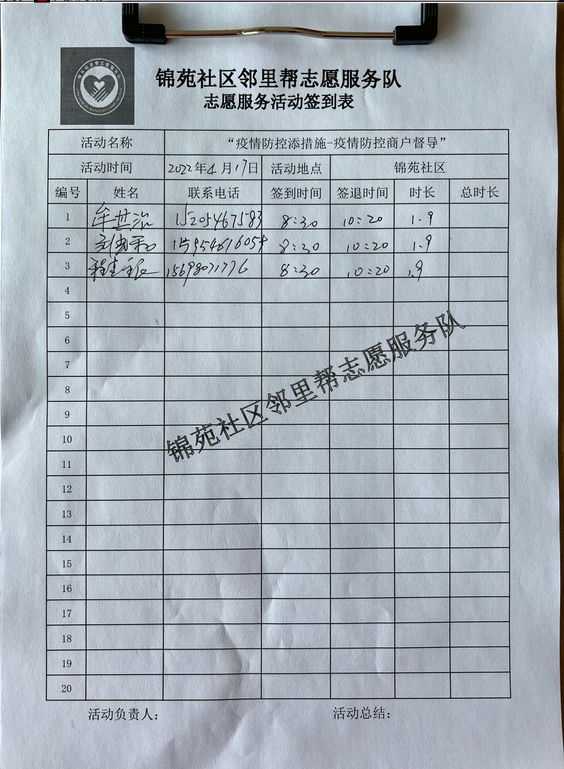 锦苑社区邻里帮志愿服务队
志愿服务活动签到表
活动名称 “疫情防控添措施-疫情防控商户督导”
活动时间 2022年4月17日 活动地点 锦苑社区
编号 姓名 联系电话 签到时间 签退时间 时长 总时长
1 牟世治 15205467583 8:30 10:20 1.9
2 8:20 10:20 1.9
3 8:30 10:20 1.9
4
5
6
7
8
9
10
11
12
13
14
15
16
17
18
19
20
锦苑社区邻里帮志愿服务队
活动负责人: 活动总结: